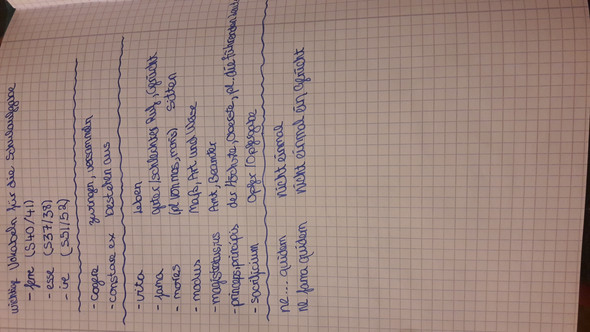 wichtige Vokabeln für die Schulaufgabe
- ferre (S40/41)
- esse (S37/38)
- ire (S51/52)
- cogere zwingen, versammeln
- constare ex bestehen aus
- vita Leben
- fama guter/schlechter Ruf, Gerücht
- mores (pl von mos, moris) Sitten
- modus Maß, Art und Weise
- magistratus, us Amt, Beamter
- princeps, principis der Höchste, Oberste, pl. die führenden
- sacrificium Opfer/Opfergabe
ne ... quidem nicht einmal
ne fama quidem nicht einmal ein Gerücht